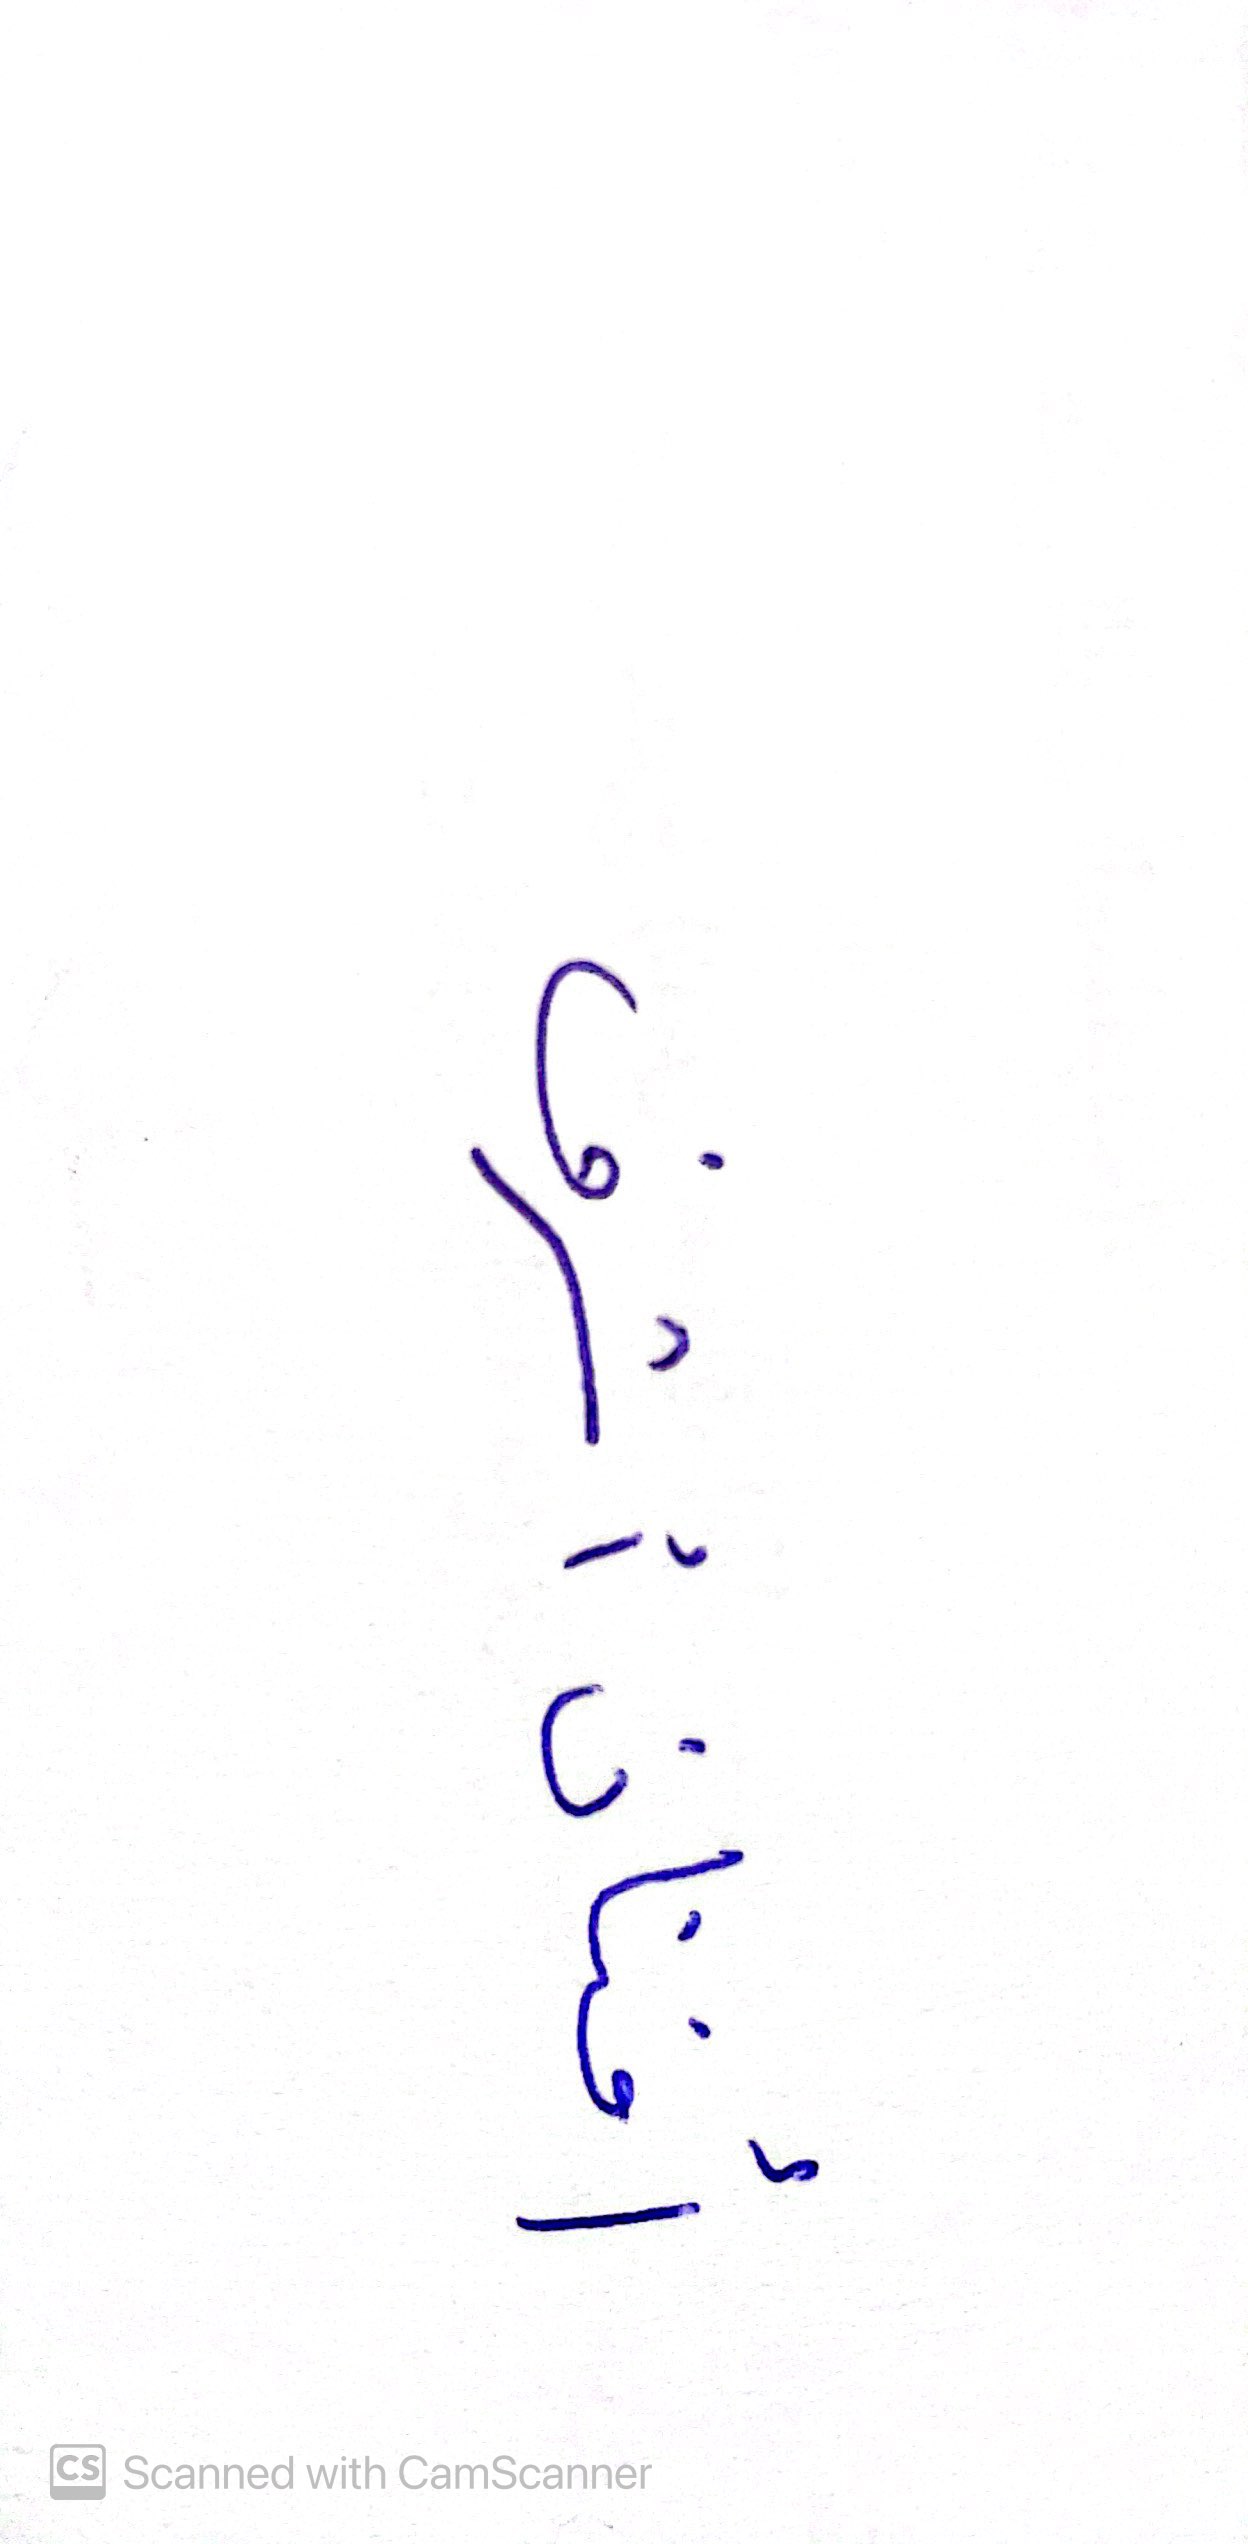 أفنان أشرف
Scanned with CamScanner
CS